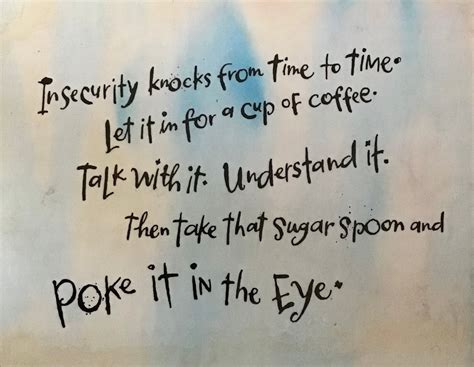 Insecurity knocks from time to time.
Let it in for a cup of coffee.
Talk with it. Understand it.
Then take that sugar spoon and
Poke it in the Eye.